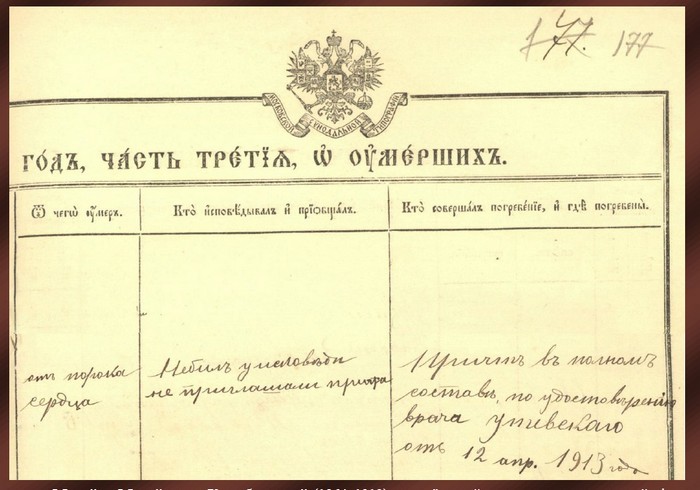 177. 177
МОСКОВСКОЙ СѴНОДАЛЬНОЙ ТИПОГРАФІИ
ГО́ДЪ, ЧА́СТЬ ТРЕ́ТЇѦ, Ѡ҆ ОУ҆МЕ́РШИХЪ.
Ѿ чегѡ̀ оу҆́меръ.
Кто̀ и҆сповѣ́дывалъ и҆ прїѡбща́лъ.
Кто̀ соверша́лъ погребе́нїе, и҆ гдѣ̀ погребены̀.
отъ порока
сердца
Небылъ у исповѣди
не приглашали
Причтъ въ полномъ
составѣ, по удостовѣренію
врача
отъ 12 апр. 1913 года